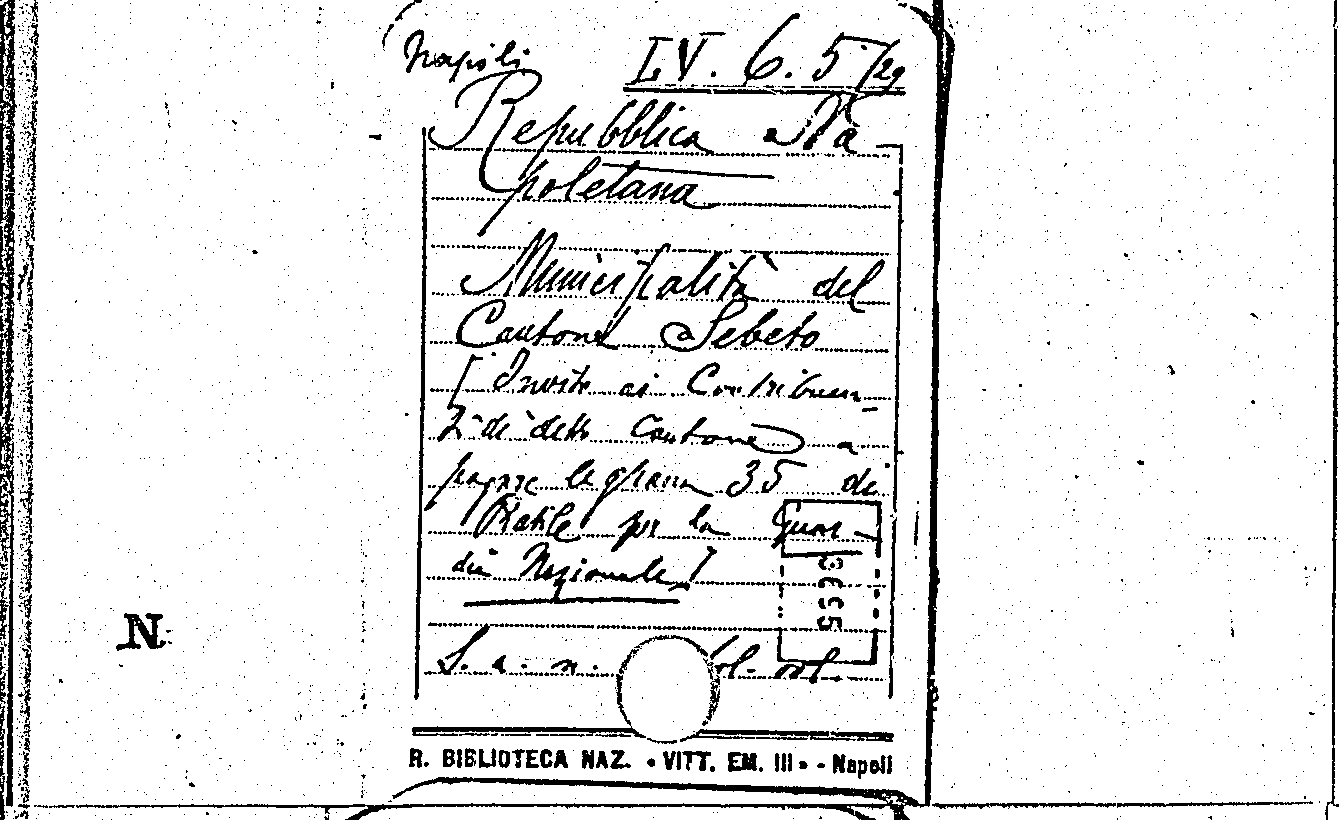 Napoli I.V. 6. 5/29
Repubblica Na-
poletana
Municipalità del
Cantone Sebeto
[Invito ai Contribuen-
ti di detto Cantone a
pagare le grana 35 di
Ratile per la Guar-
dia Nazionale]
3655
S. a. n. vol.
N
R. BIBLIOTECA NAZ. • VITT. EM. III • - Napoli